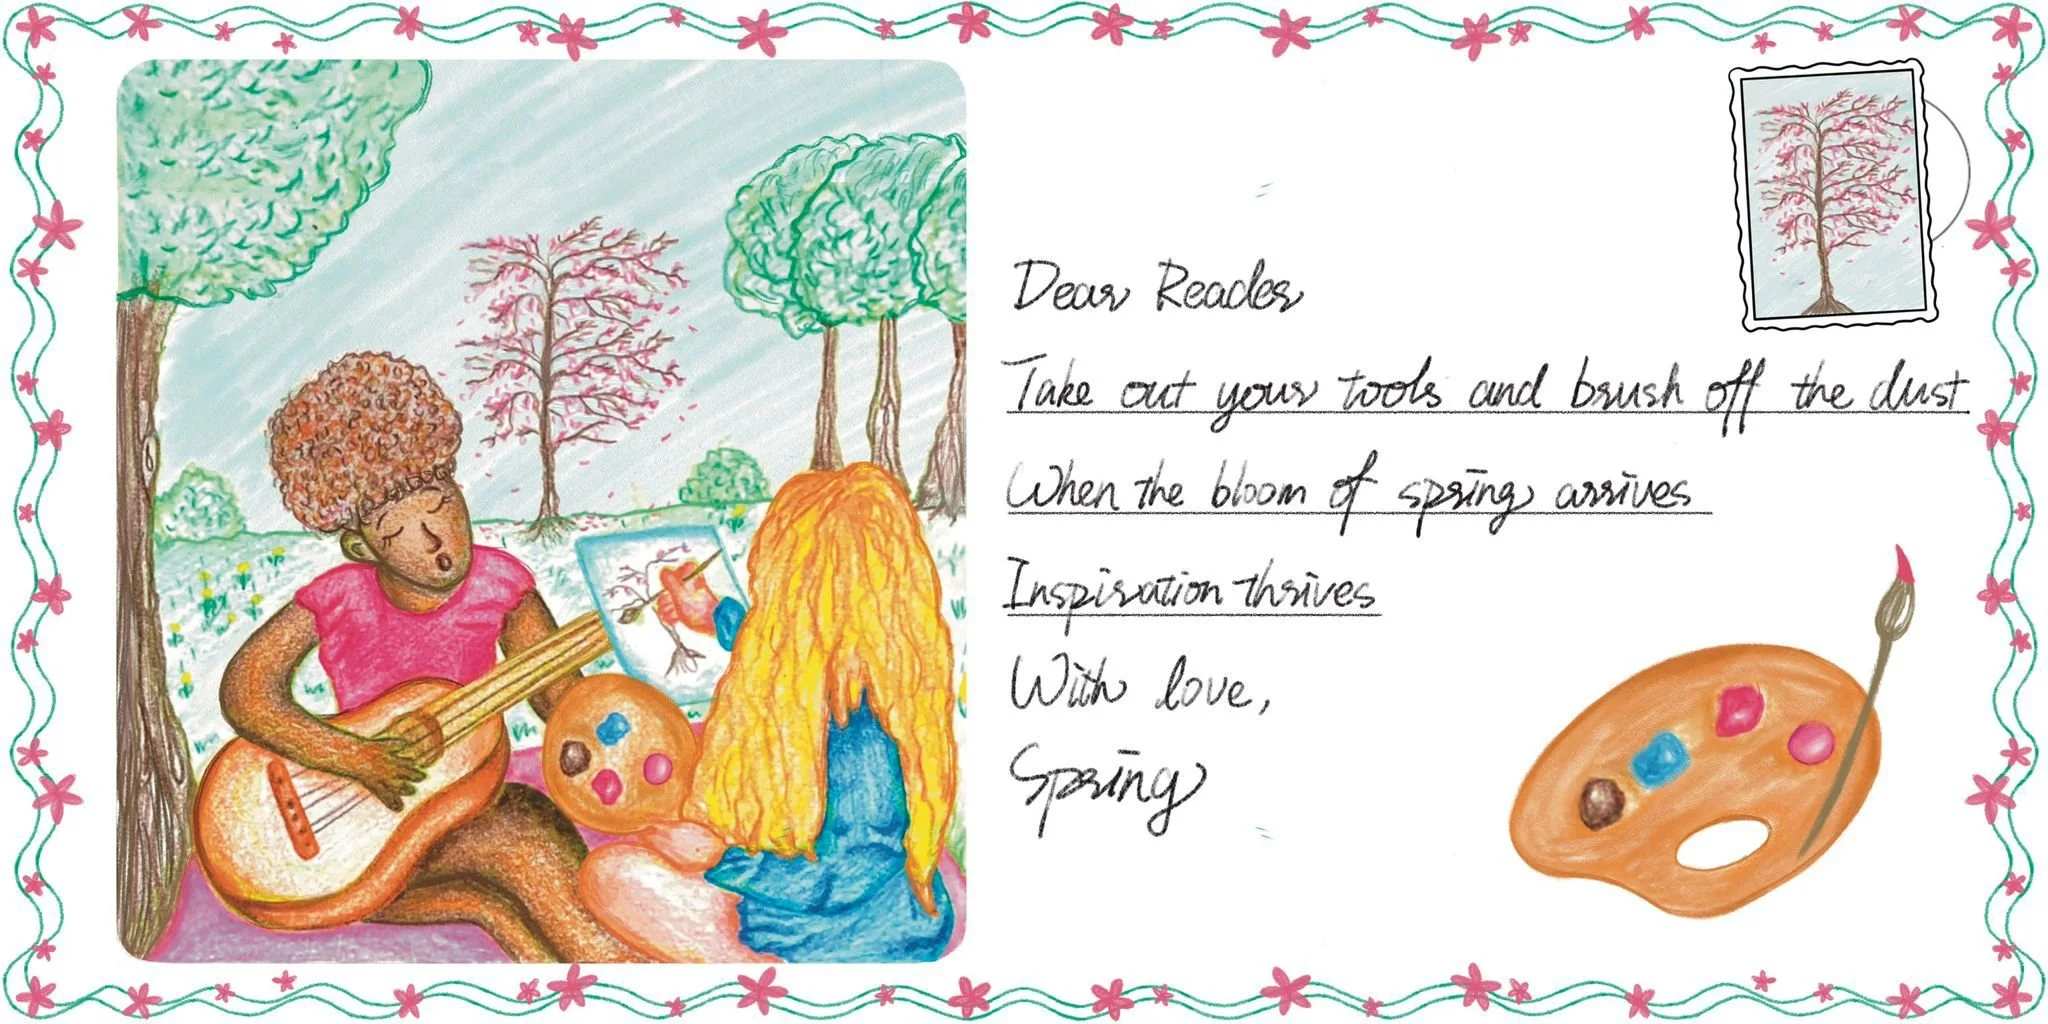 Dear Reader
Take out your tools and brush off the dust
When the bloom of spring arrives
Inspiration thrives
With love,
Spring